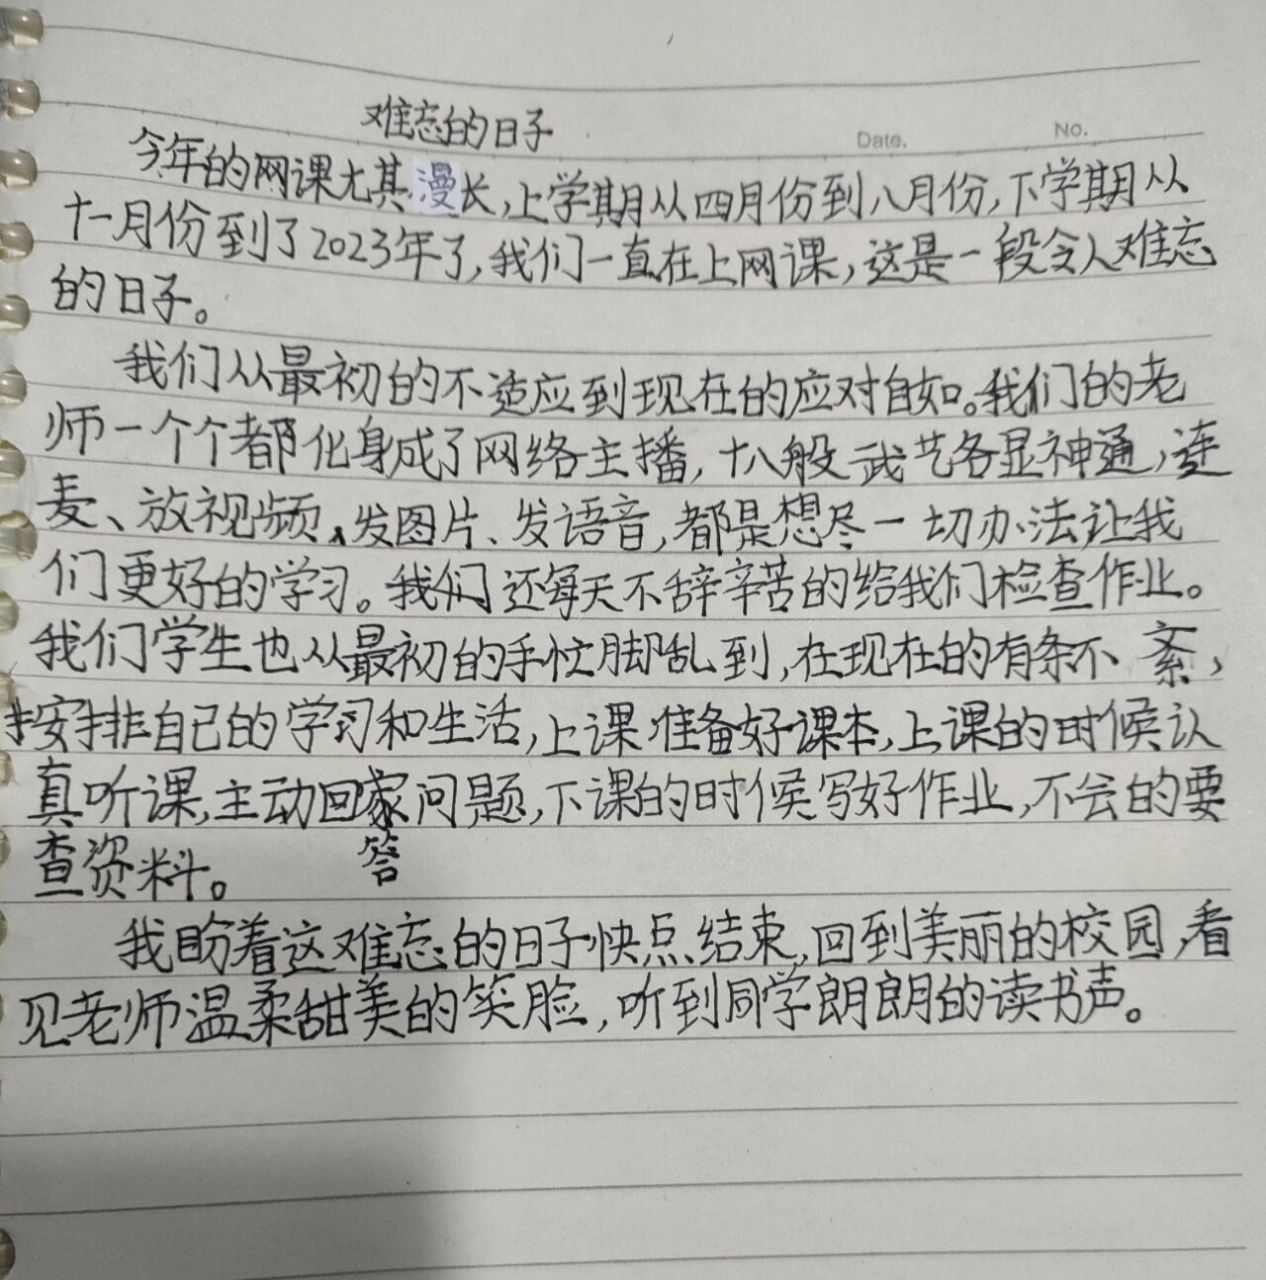 难忘的日子
Date. No.
今年的网课尤其漫长,上学期从四月份到八月份,下学期从
十一月份到了2023年了,我们一直在上网课,这是一段令人难忘
的日子。
我们从最初的不适应到现在的应对自如。我们的老
师一个个都化身成了网络主播,十八般武艺各显神通,连
麦、放视频、发图片、发语音,都是想尽一切办法让我
们更好的学习。我们还每天不辞辛苦的给我们检查作业。
我们学生也从最初的手忙脚乱到,在现在的有条不紊,
按排自己的学习和生活,上课准备好课本,上课的时候认
真听课,主动回家问题,下课的时候写好作业,不会的要
查资料。 答
我盼着这难忘的日子快点结束,回到美丽的校园,看
见老师温柔甜美的笑脸,听到同学朗朗的读书声。